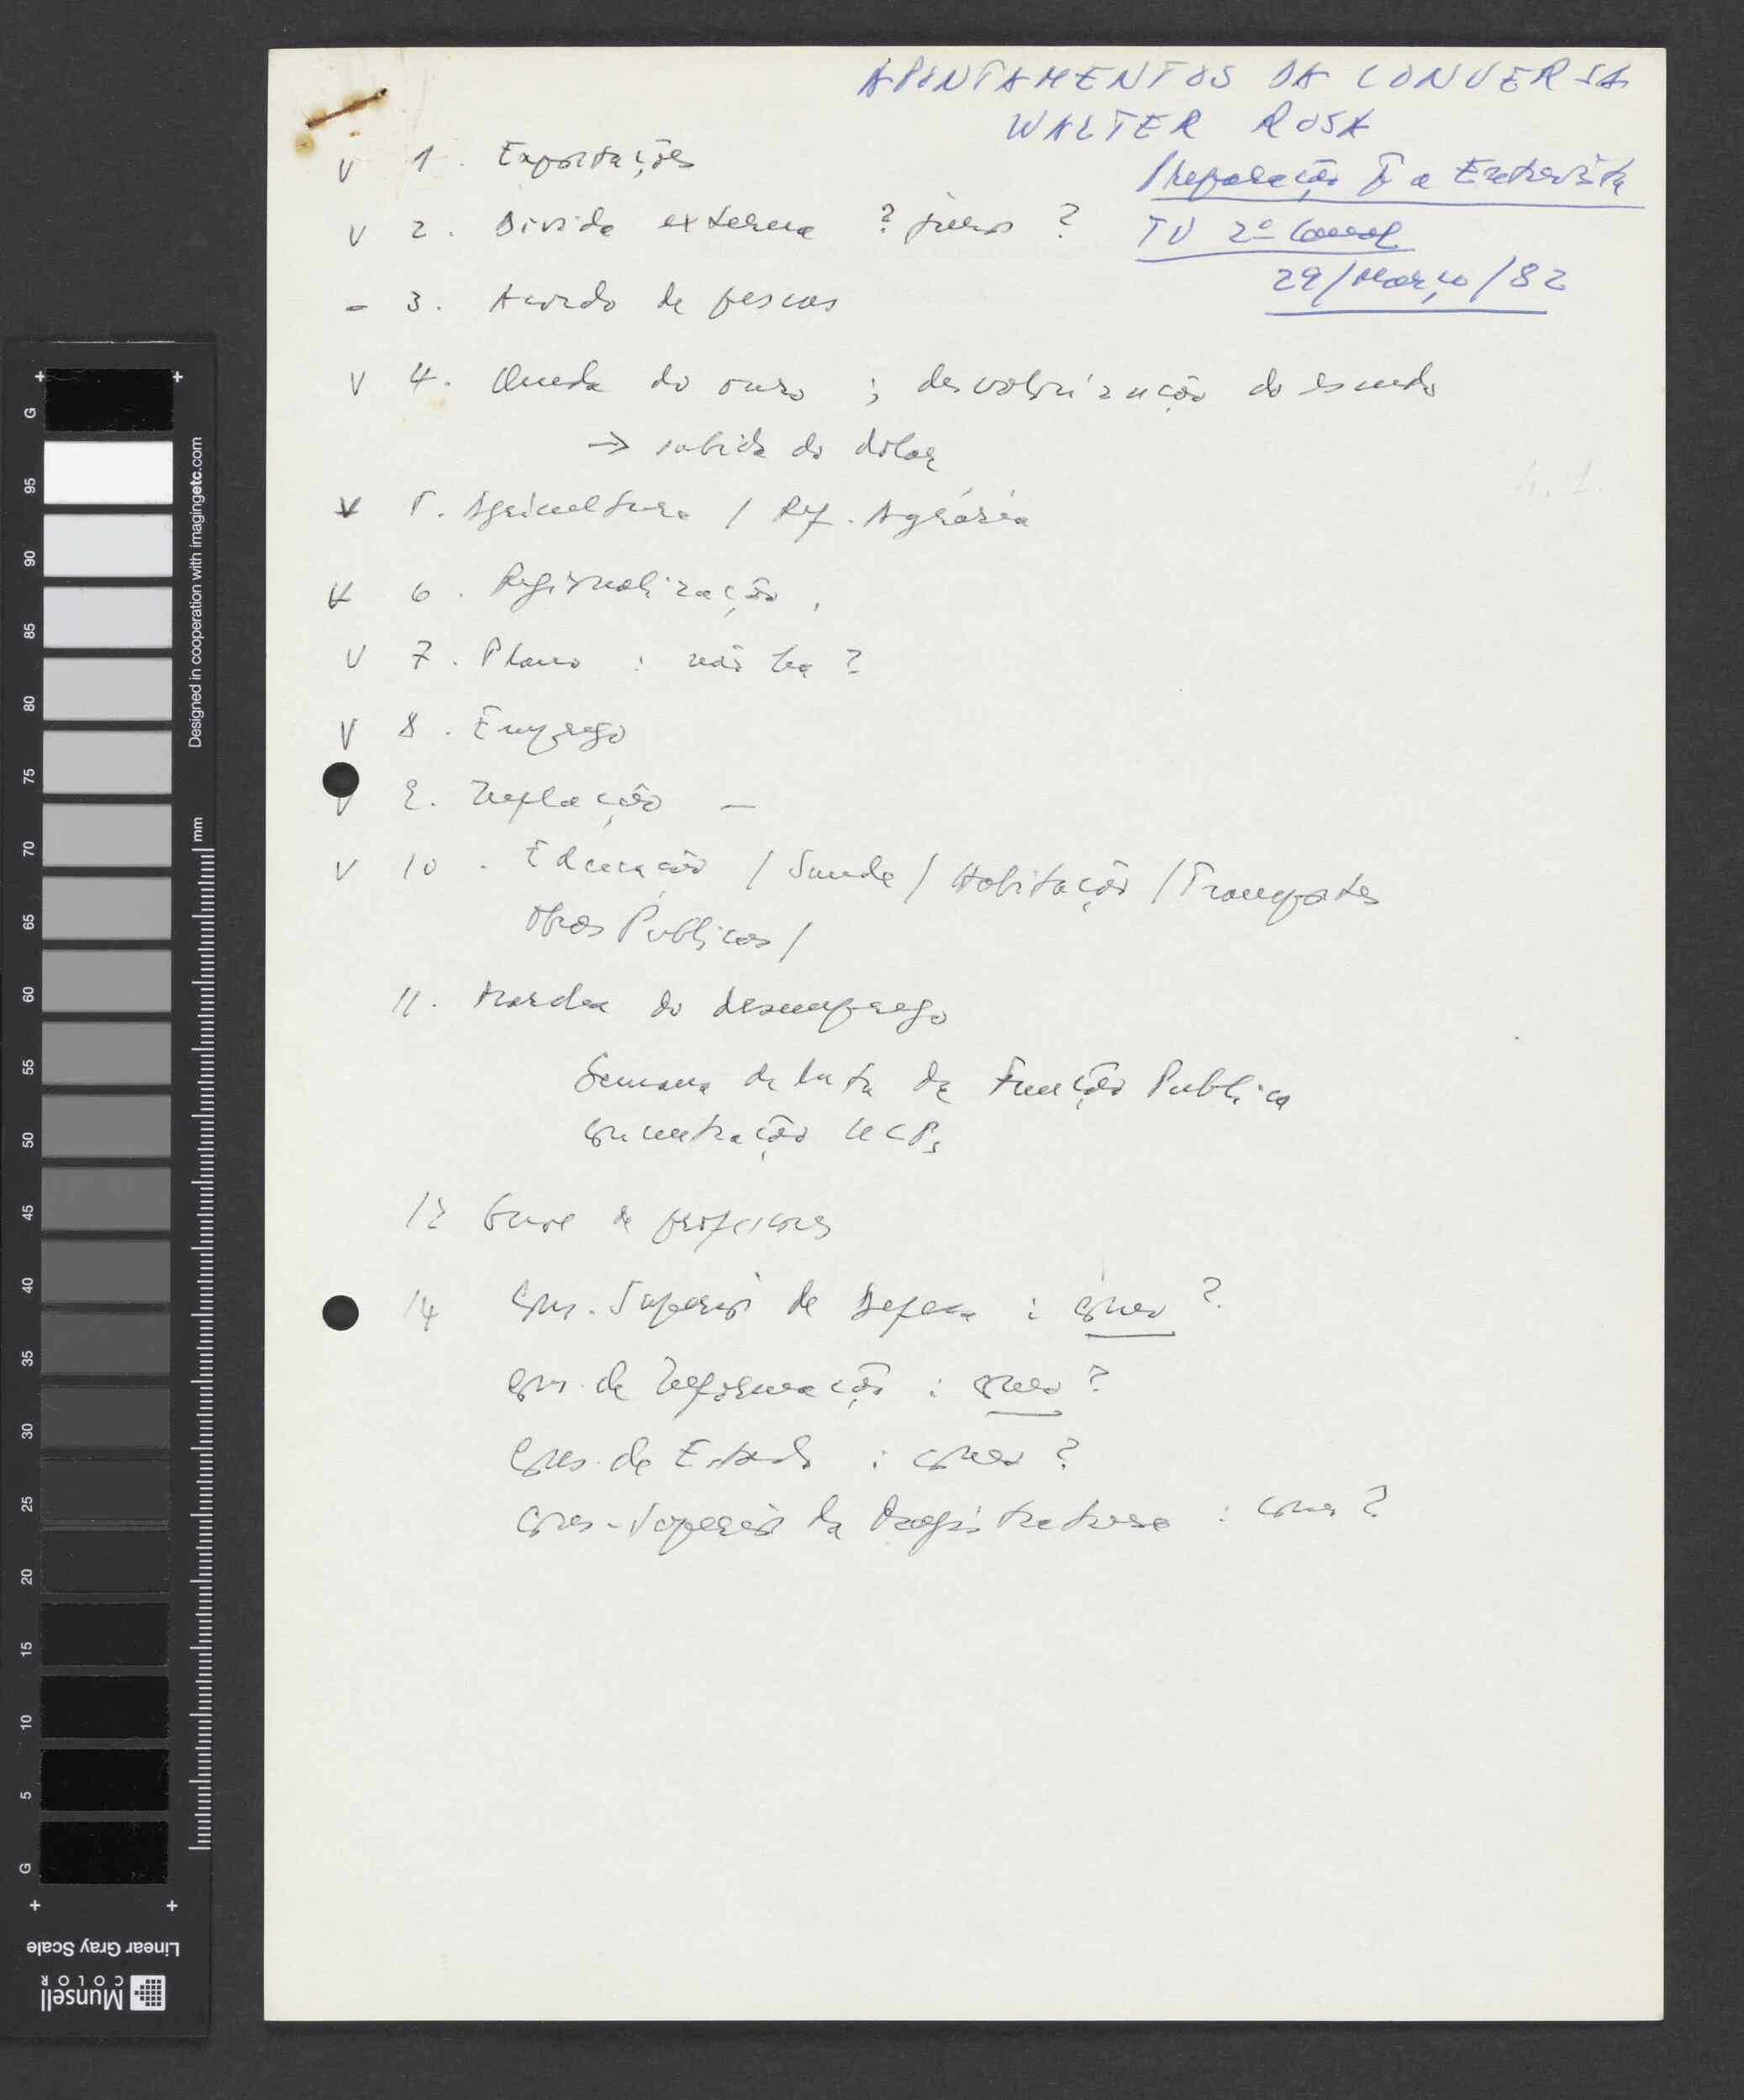 APONTAMENTOS DA CONVERSA
WALTER ROSA
Preparação p̄ a Entrevista
TV 2º Canal
29/Março/82
V 1. Exportações
V 2. Divida externa ? juros ?
- 3. Acordo de pescas
V 4. Queda do ouro ; desvalorização do escudo
→ subida do dólar
V 5. Agricultura / Ref. Agrária
V 6. Regionalização.
V 7. Plano : não há ?
V 8. Emprego
V 9. Inflação —
V 10. Educação / Saude / Habitação / Transportes
Obras Públicas /
11. Marcha do desemprego
Semana de luta da Função Publica
Concentração UCPs
12 Greve de professores
14 Cons. Superior de Defesa : como ?
Cons. de Informação : como ?
Cons. de Estado : como ?
Cons. Superior da Magistratura : como ?
G 95 90 85 80 75 70 65 60 55 50 45 40 35 30 25 20 15 10 5 G
Designed in cooperation with imagingetc.com
mm
Linear Gray Scale
Munsell
COLOR